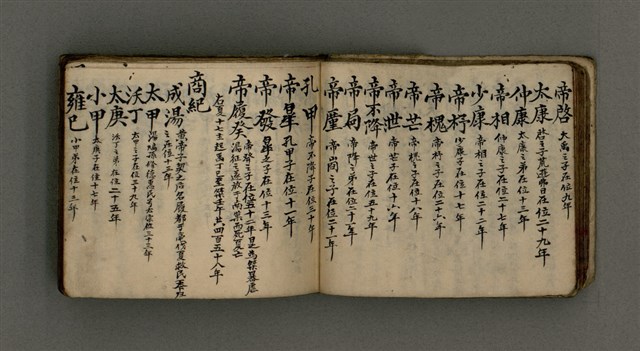 帝啓 大禹之子在位九年
太康 啓之子荒遊弗日在位二十九年
仲康 太康之弟在位十三年
帝相 仲康之子在位二十八年
少康 帝相之子在位二十二年
帝杼 少康子在位十七年
帝槐 帝杼之子在位二十六年
帝芒 帝槐之子在位十八年
帝泄 帝芒之子在位十六年
帝不降 帝世之子在位五十九年
帝扃 帝降之弟在位二十一年
帝廑 帝扃之子在位二十一年
孔甲 帝不降子在位三十年
帝皐 孔甲子在位十一年
帝發 帝皐之子在位十三年
帝履癸 帝發之子在位五十二年
右夏十七主起禹丁巳至 共四百五十八年
商紀
成湯
太甲 在位三十三年
沃丁 太甲之子在位二十九年
太庚 沃丁之弟在位二十五年
小甲 太庚子在位十七年
雍巳 小甲弟在位十三年